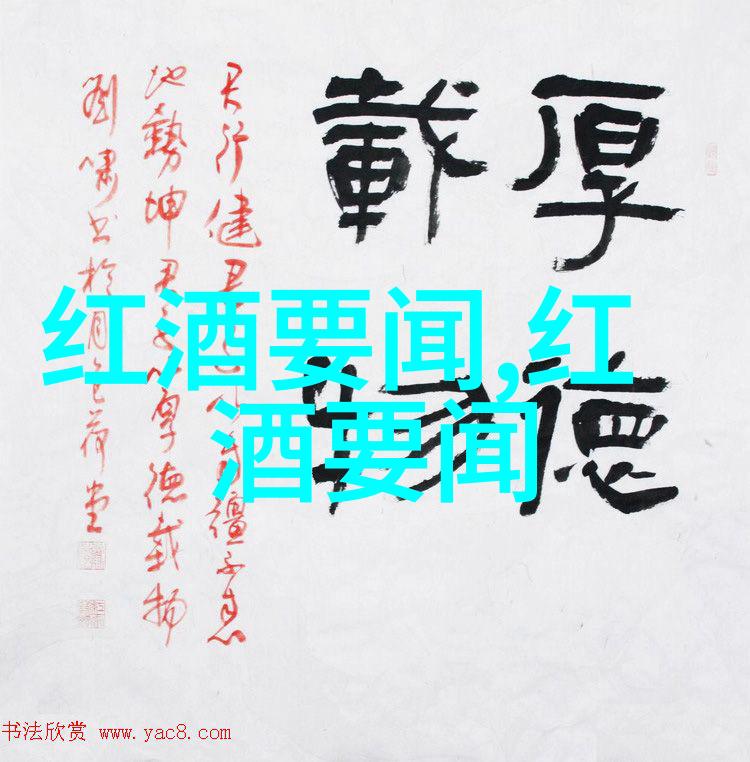 厚德
載物
天行健君子以自彊不息
地勢坤君子以厚德載物
劉嘯书於月色荷堂
红酒要闻,红
酒要闻
书法欣赏 www.yac8.com